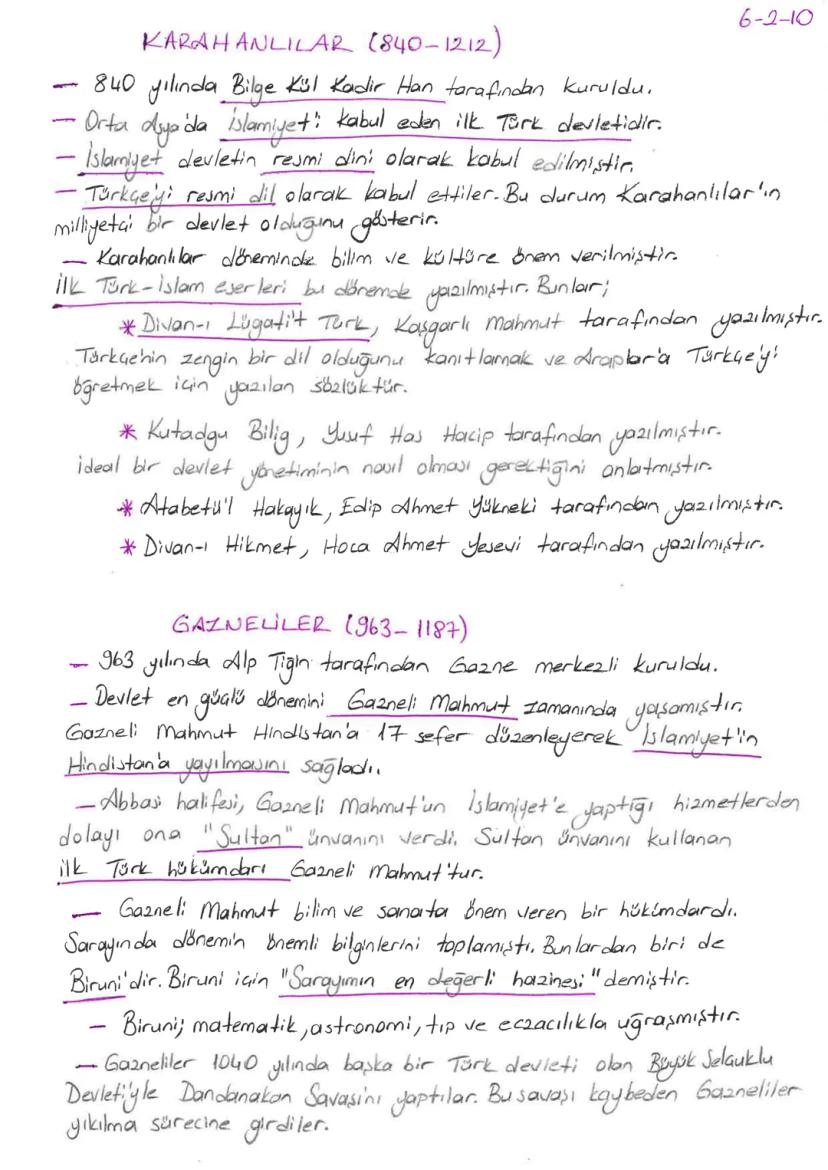 6-2-10
KARAHANLILAR (840-1212)
— 840 yılında Bilge Kül Kadir Han tarafından kuruldu.
— Orta Asya'da İslamiyet'i kabul eden ilk Türk devletidir.
— İslamiyet devletin resmi dini olarak kabul edilmiştir.
— Türkçe'yi resmi dil olarak kabul ettiler. Bu durum Karahanlılar'ın
milliyetçi bir devlet olduğunu gösterir.
— Karahanlılar döneminde bilim ve kültüre önem verilmiştir.
İlk Türk-İslam eserleri bu dönemde yazılmıştır. Bunlar;
* Divan-ı Lügati't Türk, Kaşgarlı Mahmut tarafından yazılmıştır.
Türkçe'nin zengin bir dil olduğunu kanıtlamak ve Araplar'a Türkçe'yi
öğretmek için yazılan sözlüktür.
* Kutadgu Bilig, Yusuf Has Hacip tarafından yazılmıştır.
İdeal bir devlet yönetiminin nasıl olması gerektiğini anlatmıştır.
* Atabetü'l Hakayık, Edip Ahmet Yükneki tarafından yazılmıştır.
* Divan-ı Hikmet, Hoca Ahmet Yesevi tarafından yazılmıştır.
GAZNELİLER (963-1187)
— 963 yılında Alp Tigin tarafından Gazne merkezli kuruldu.
— Devlet en güçlü dönemini Gazneli Mahmut zamanında yaşamıştır.
Gazneli Mahmut Hindistan'a 17 sefer düzenleyerek İslamiyet'in
Hindistan'a yayılmasını sağladı.
— Abbasi halifesi, Gazneli Mahmut'un İslamiyet'e yaptığı hizmetlerden
dolayı ona "Sultan" ünvanını verdi. Sultan ünvanını kullanan
ilk Türk hükümdarı Gazneli Mahmut'tur.
— Gazneli Mahmut bilim ve sanata önem veren bir hükümdardı.
Sarayında dönemin önemli bilginlerini toplamıştı. Bunlardan biri de
Biruni'dir. Biruni için "Sarayımın en değerli hazinesi" demiştir.
— Biruni; matematik, astronomi, tıp ve eczacılıkla uğraşmıştır.
— Gazneliler 1040 yılında başka bir Türk devleti olan Büyük Selçuklu
Devleti'yle Dandanakan Savaşı'nı yaptılar. Bu savaşı kaybeden Gazneliler
yıkılma sürecine girdiler.